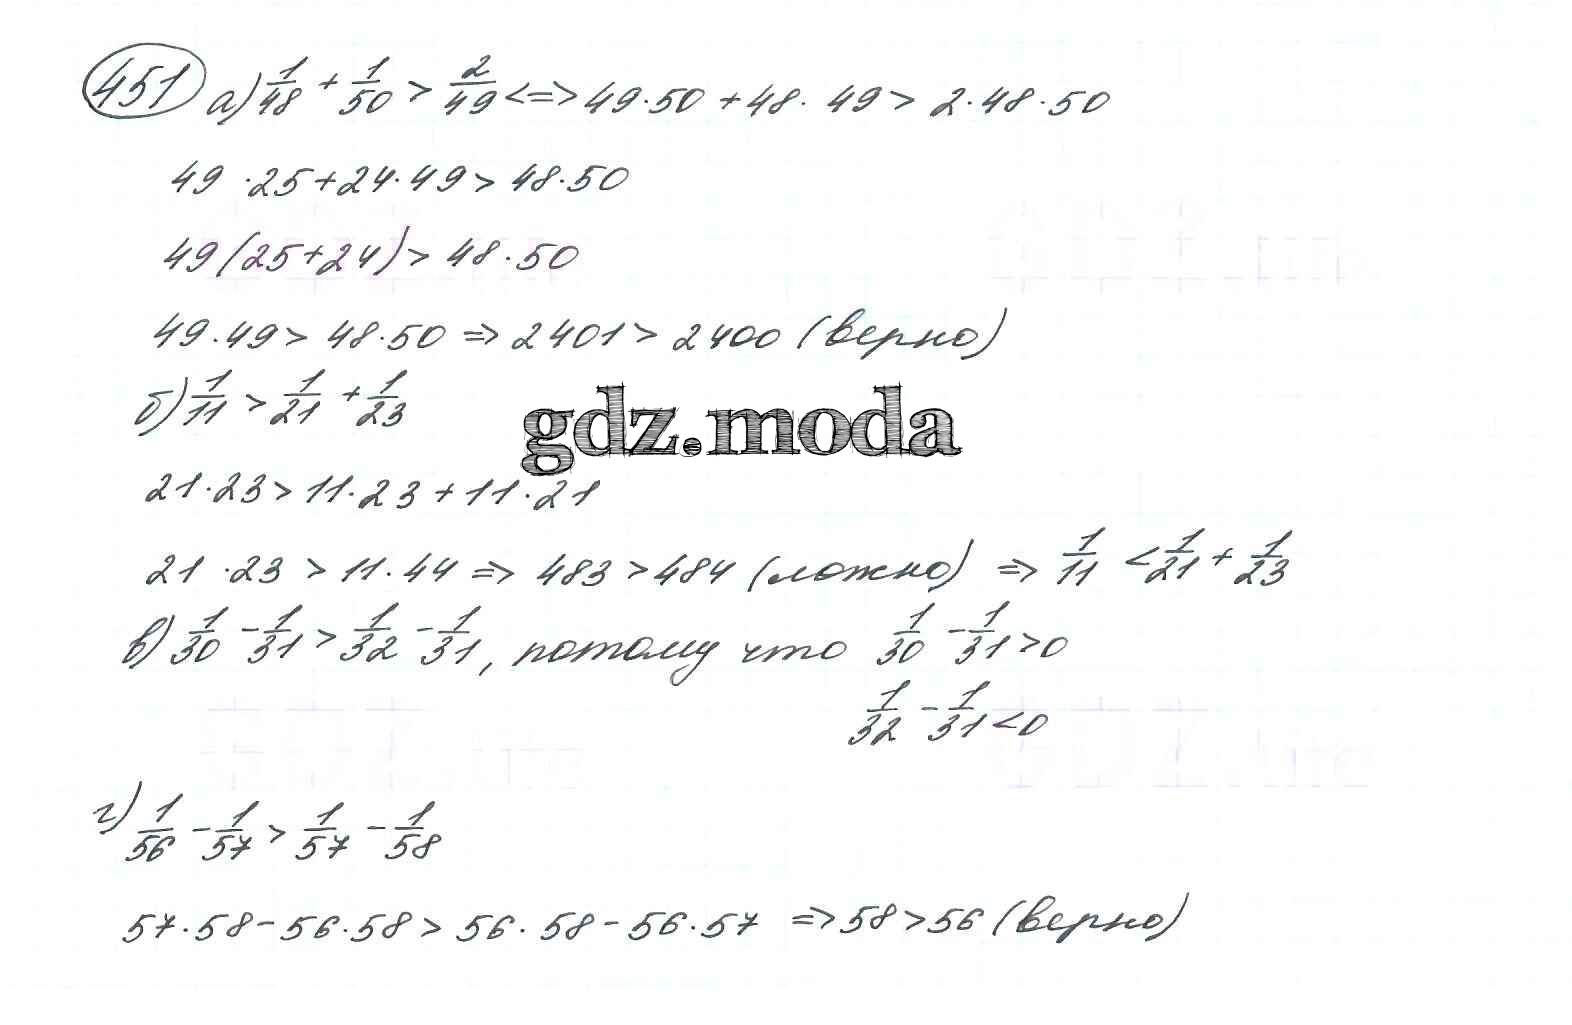 451 а) 1/48 + 1/50 > 2/49 <=> 49·50 + 48·49 > 2·48·50
49·25+24·49 > 48·50
49(25+24) > 48·50
49·49 > 48·50 => 2401 > 2400 (верно)
б) 1/11 > 1/21 + 1/23
gdz.moda
21·23 > 11·23 + 11·21
21·23 > 11·44 => 483 > 484 (ложно) => 1/11 < 1/21 + 1/23
в) 1/30 - 1/31 > 1/32 - 1/31, потому что 1/30 - 1/31 > 0
1/32 - 1/31 < 0
г) 1/56 - 1/57 > 1/57 - 1/58
57·58 - 56·58 > 56·58 - 56·57 => 58 > 56 (верно)